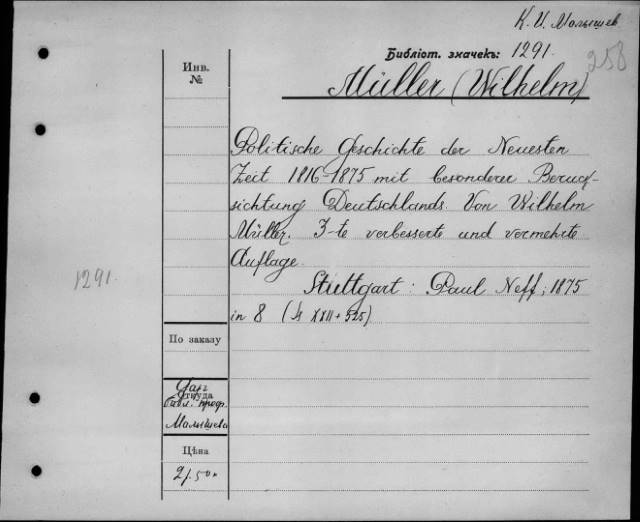 К. И. Малышев
Библіот. значекъ: 1291.
258
Инв.
№
Müller (Wilhelm)
Politische Geschichte der Neuesten
Zeit 1816-1875 mit besonderer Beruck-
sichtung Deutschlands Von Wilhelm
Müller. 3-te verbesserte und vermehrte
Auflage.
Stuttgart: Paul Neff; 1875
in 8 ( XXII + 525)
1291.
По заказу
Откуда
Даръ
библ. проф.
Малышева
Цѣна